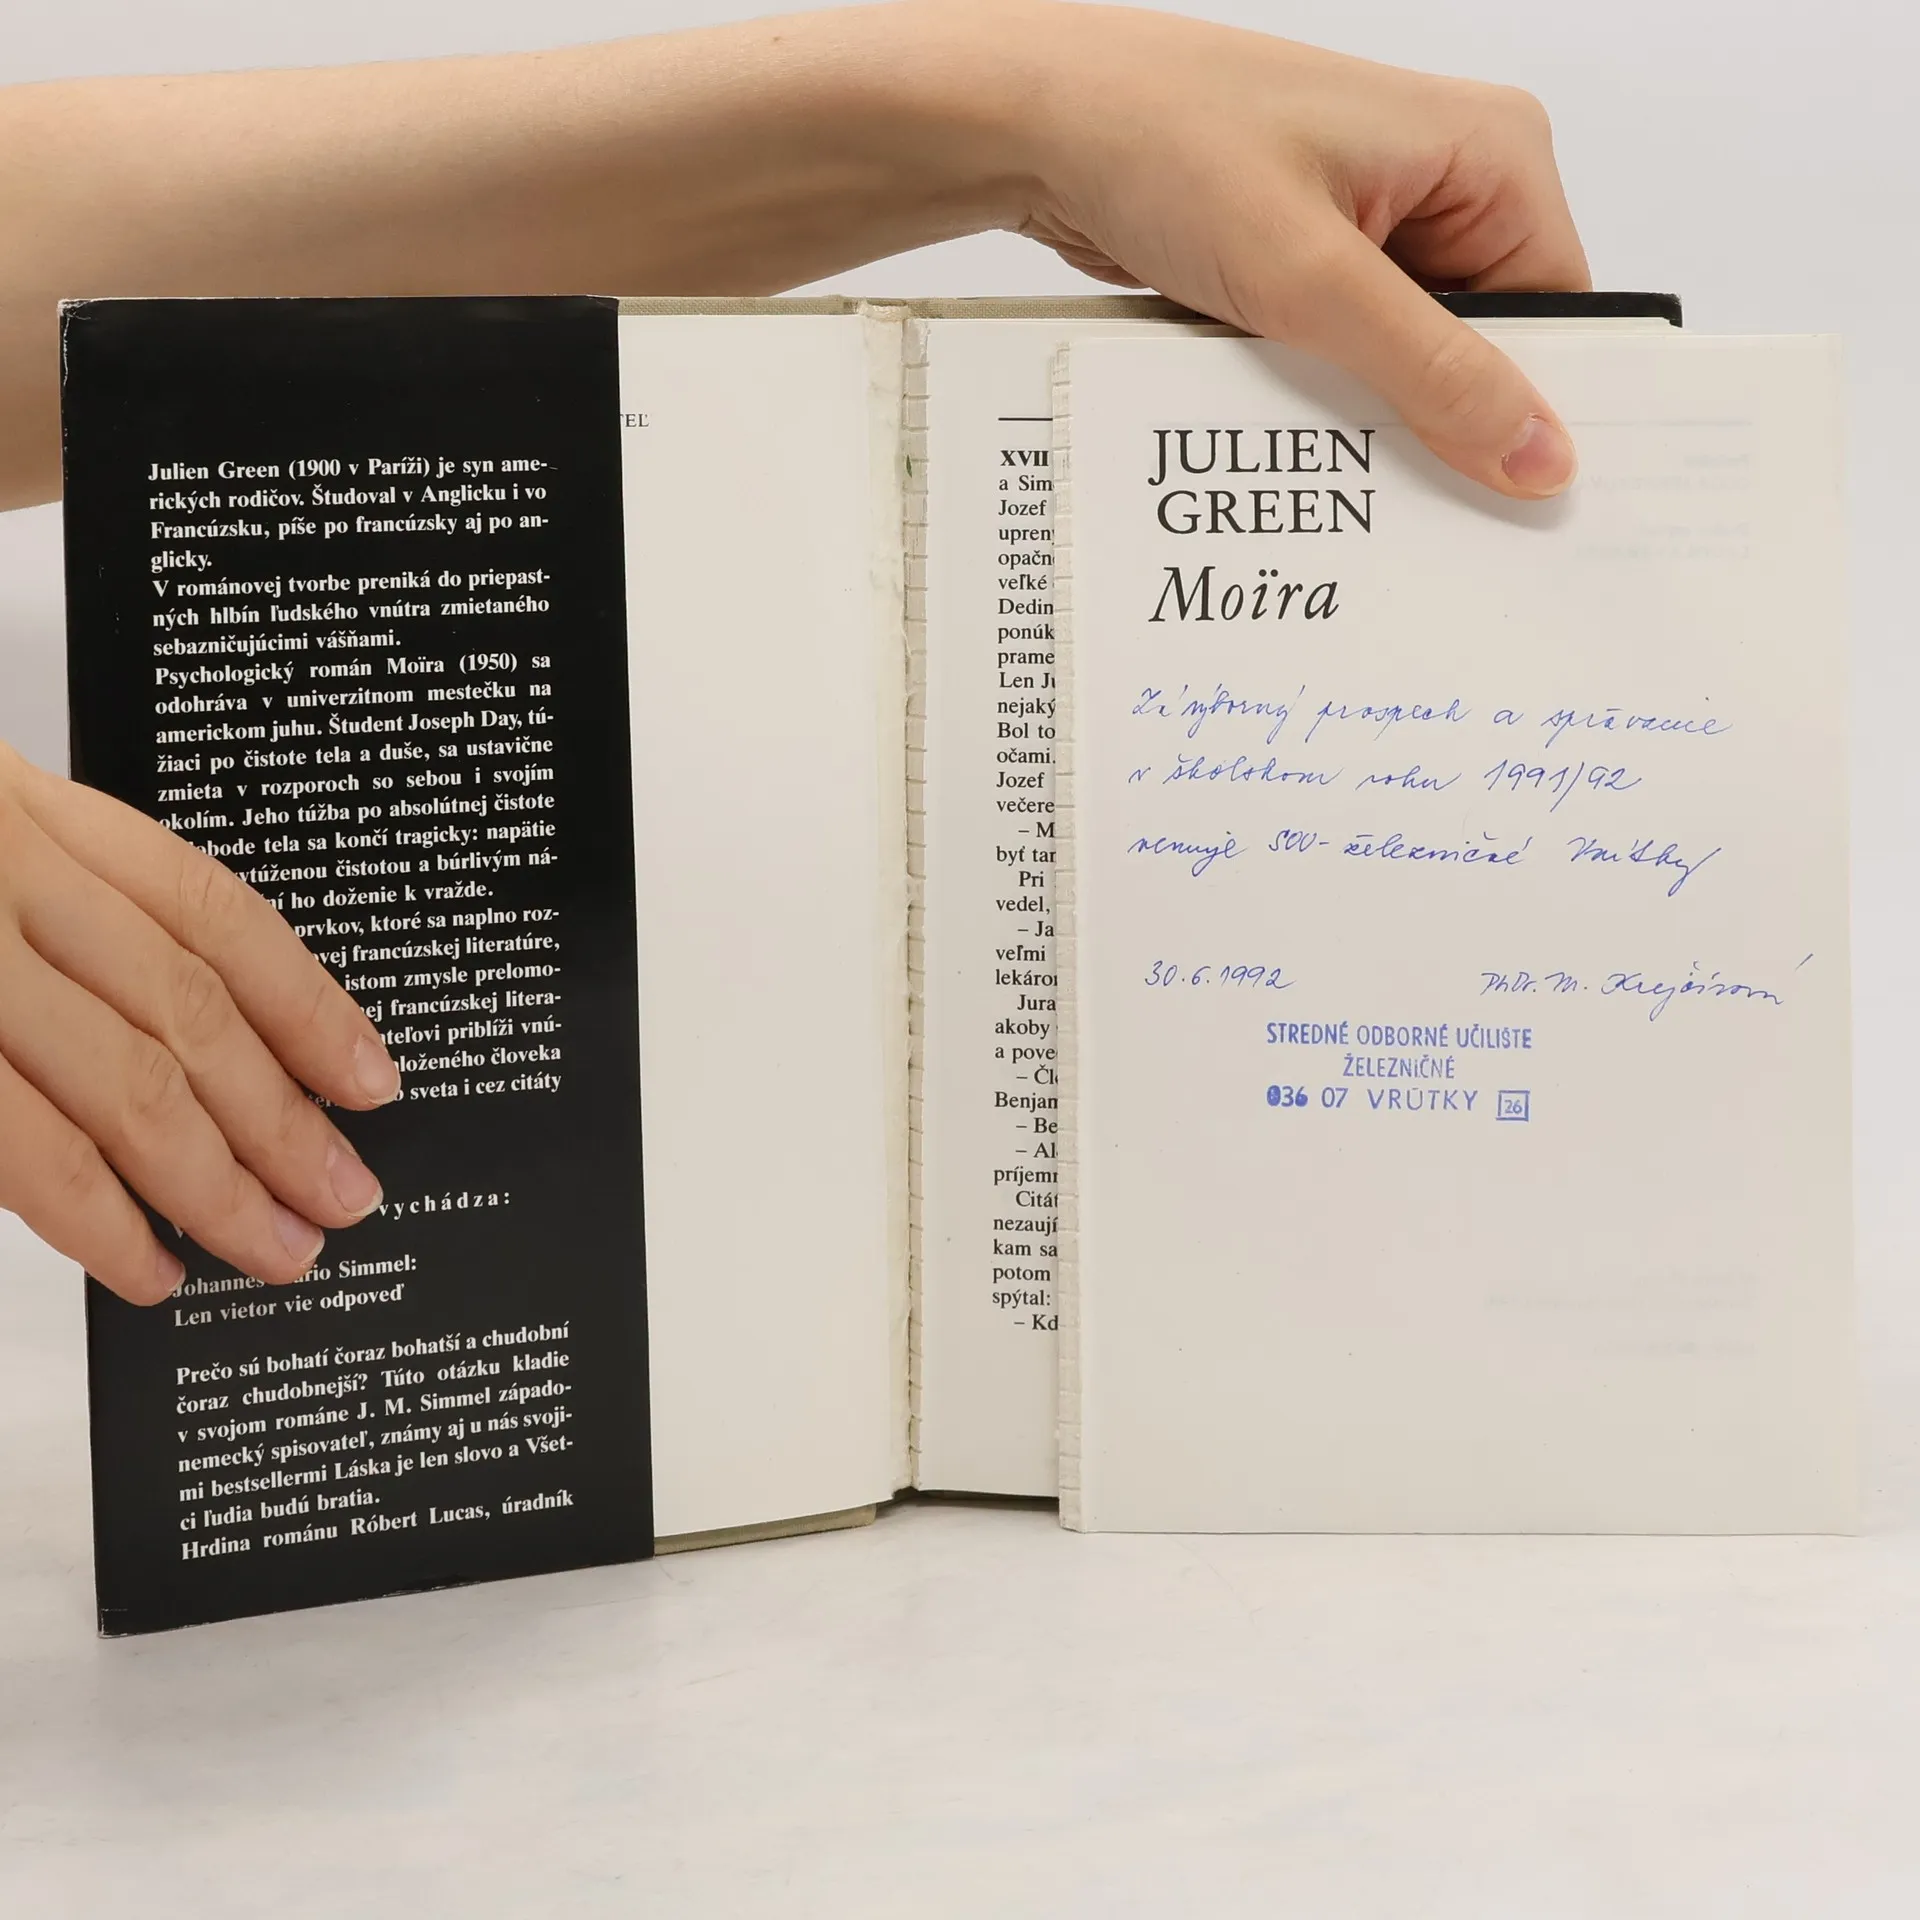 Julien Green (1900 v Paríži) je syn ame-
rických rodičov. Študoval v Anglicku i vo
Francúzsku, píše po francúzsky aj po an-
glicky.
V románovej tvorbe preniká do priepast-
ných hlbín ľudského vnútra zmietaného
sebazničujúcimi vášňami.
Psychologický román Moïra (1950) sa
odohráva v univerzitnom mestečku na
americkom juhu. Študent Joseph Day, tú-
žiaci po čistote tela a duše, sa ustavične
zmieta v rozporoch so sebou i svojím
okolím. Jeho túžba po absolútnej čistote
obode tela sa končí tragicky: napätie
vytúženou čistotou a búrlivým ná-
ní ho doženie k vražde.
prvkov, ktoré sa naplno roz-
ovej francúzskej literatúre,
istom zmysle prelomo-
nej francúzskej litera-
ateľovi priblíži vnú-
aloženého človeka
o sveta i cez citáty
vychádza:
Johannes Mario Simmel:
Len vietor vie odpoveď
Prečo sú bohatí čoraz bohatší a chudobní
čoraz chudobnejší? Túto otázku kladie
v svojom románe J. M. Simmel západo-
nemecký spisovateľ, známy aj u nás svoji-
mi bestsellermi Láska je len slovo a Všet-
ci ľudia budú bratia.
Hrdina románu Róbert Lucas, úradník
TEĽ
XVII
a Sim
Jozef
upren
opačn
veľké
Dedin
ponúk
prame
Len Ju
nejaký
Bol to
očami.
Jozef
večere
– M
byť tar
Pri
vedel,
– Ja
veľmi
lekáro
Jura
akoby
a pove
– Čl
Benjam
– Be
– Al
príjem
Citát
nezaují
kam sa
potom
spýtal:
– Kd
JULIEN
GREEN
Moïra
Za výborný prospech a správanie
v školskom roku 1991/92
venuje SOU-železničné Vrútky
30.6.1992 PhDr. M. Krejčírová
STREDNÉ ODBORNÉ UČILIŠTE
ŽELEZNIČNÉ
036 07 VRÚTKY 26